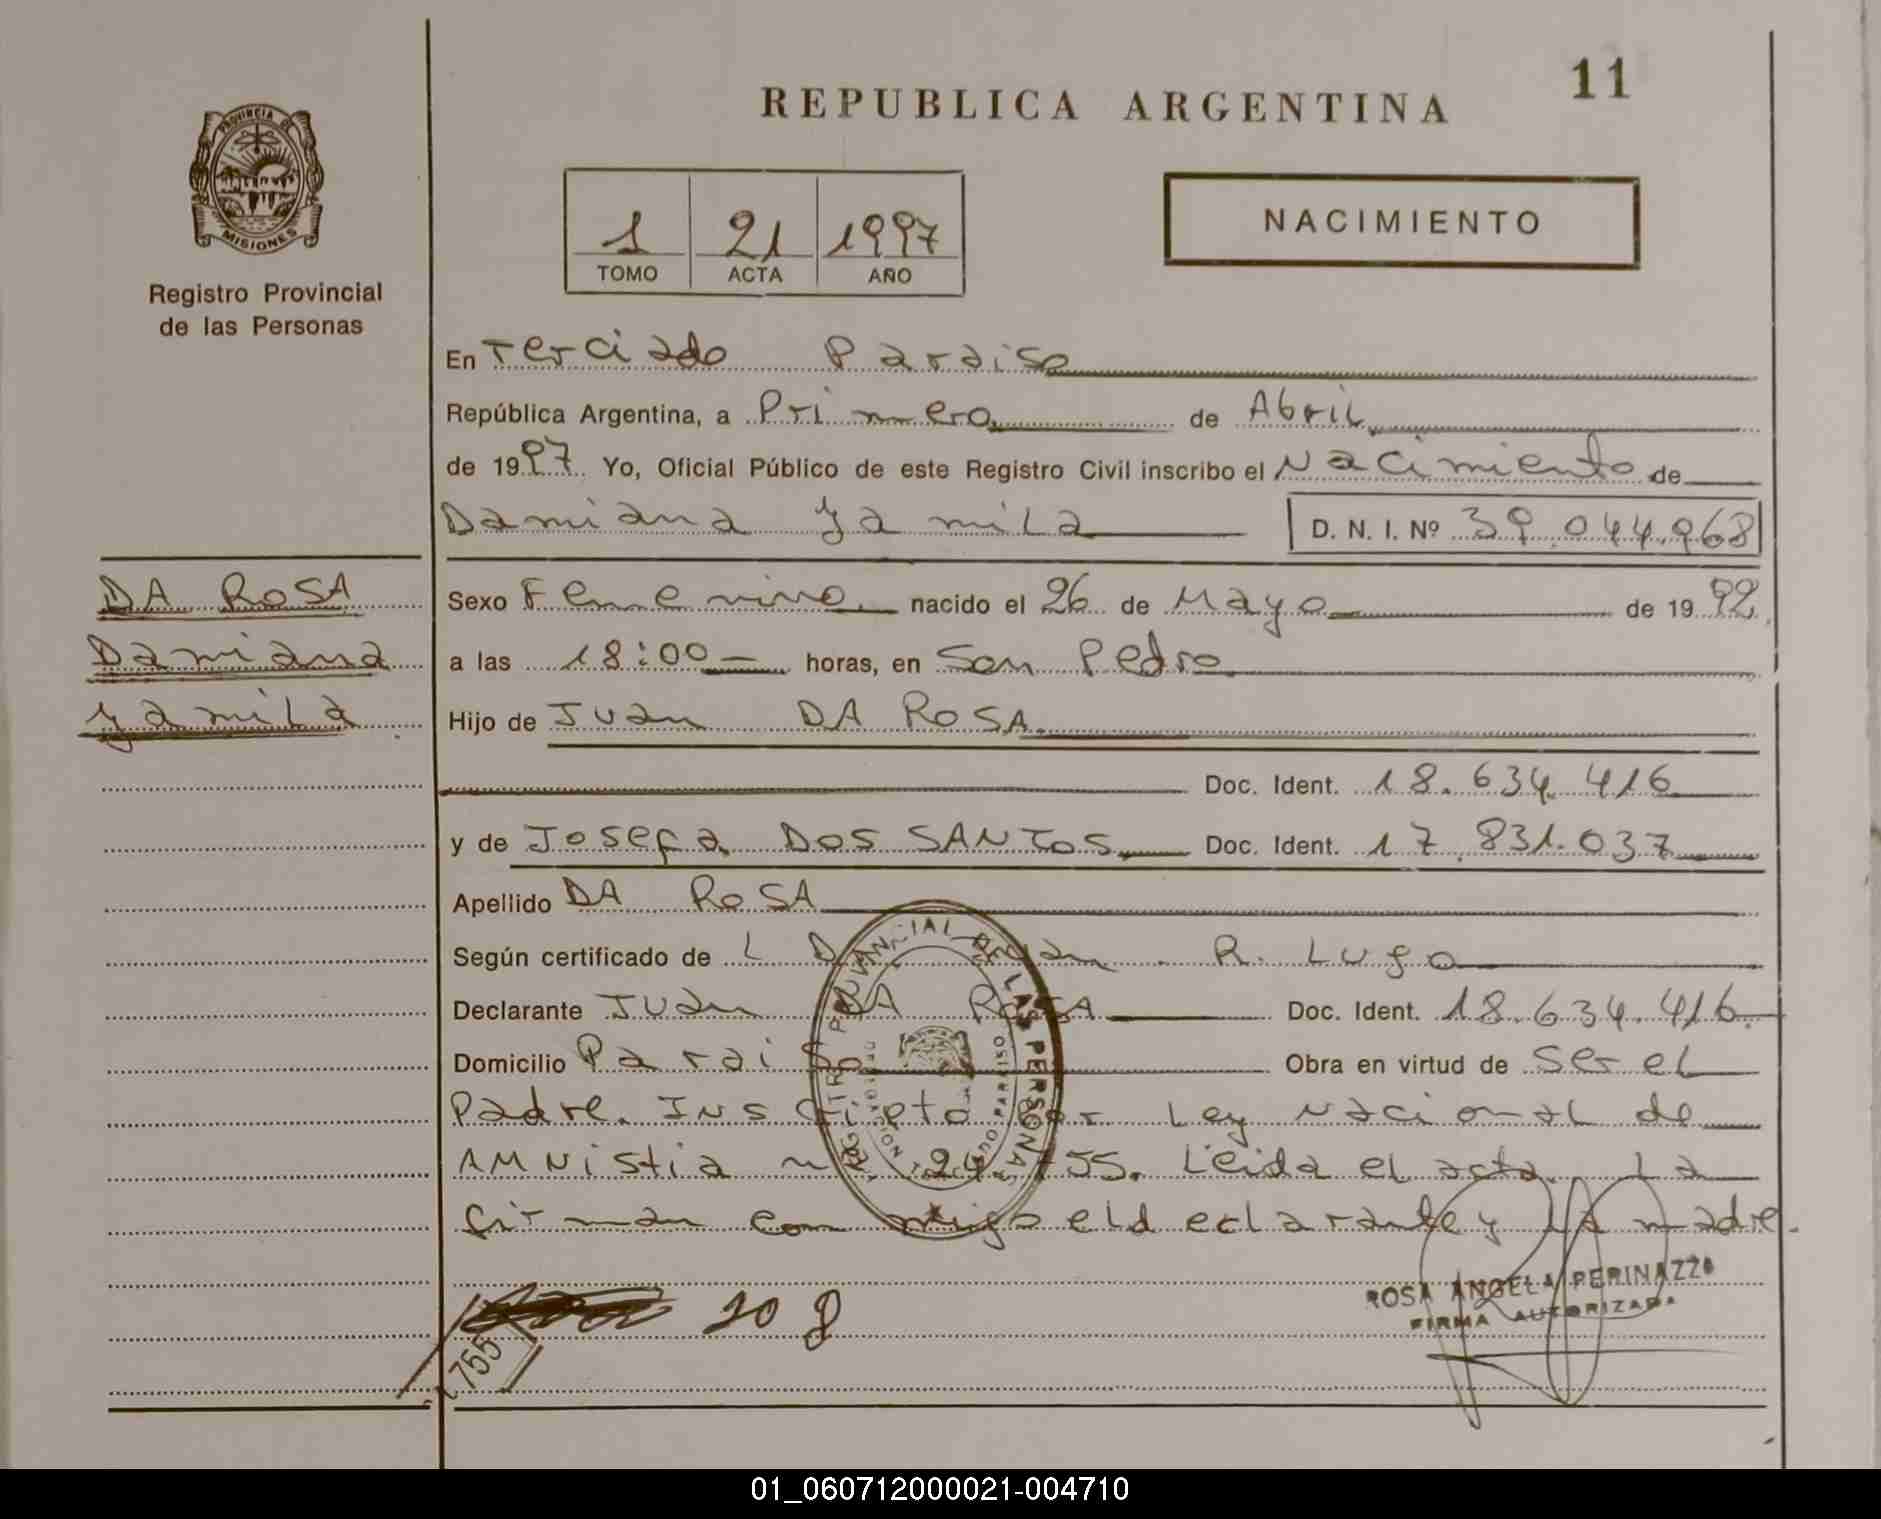 11
REPUBLICA ARGENTINA
PROVINCIA DE
MISIONES
Registro Provincial
de las Personas
1 21 1997
TOMO ACTA AÑO
NACIMIENTO
En Terciado Paraiso
República Argentina, a Primero de Abril
de 1997 Yo, Oficial Público de este Registro Civil inscribo el Nacimiento de
Damiana Yamila D. N. I. Nº 39.044.968
DA ROSA
Damiana
Yamila
Sexo Femenino nacido el 26 de Mayo de 1992
a las 18:00 horas, en San Pedro
Hijo de Juan DA ROSA
Doc. Ident. 18.634.416
y de Josefa DOS SANTOS Doc. Ident. 17.831.037
Apellido DA ROSA
Según certificado de L R. Lugo
Declarante Juan DA ROSA Doc. Ident. 18.634.416.
Domicilio Paraiso Obra en virtud de ser el
Padre. Inscripto por Ley Nacional de
AMNistia n 24.755. Leida el acta. La
firman conmigo el declarante y la madre.
REGISTRO PROVINCIAL DE LAS PERSONAS
ROSA ANGELA PERINAZZO
FIRMA AUTORIZADA
208
755
01_060712000021-004710